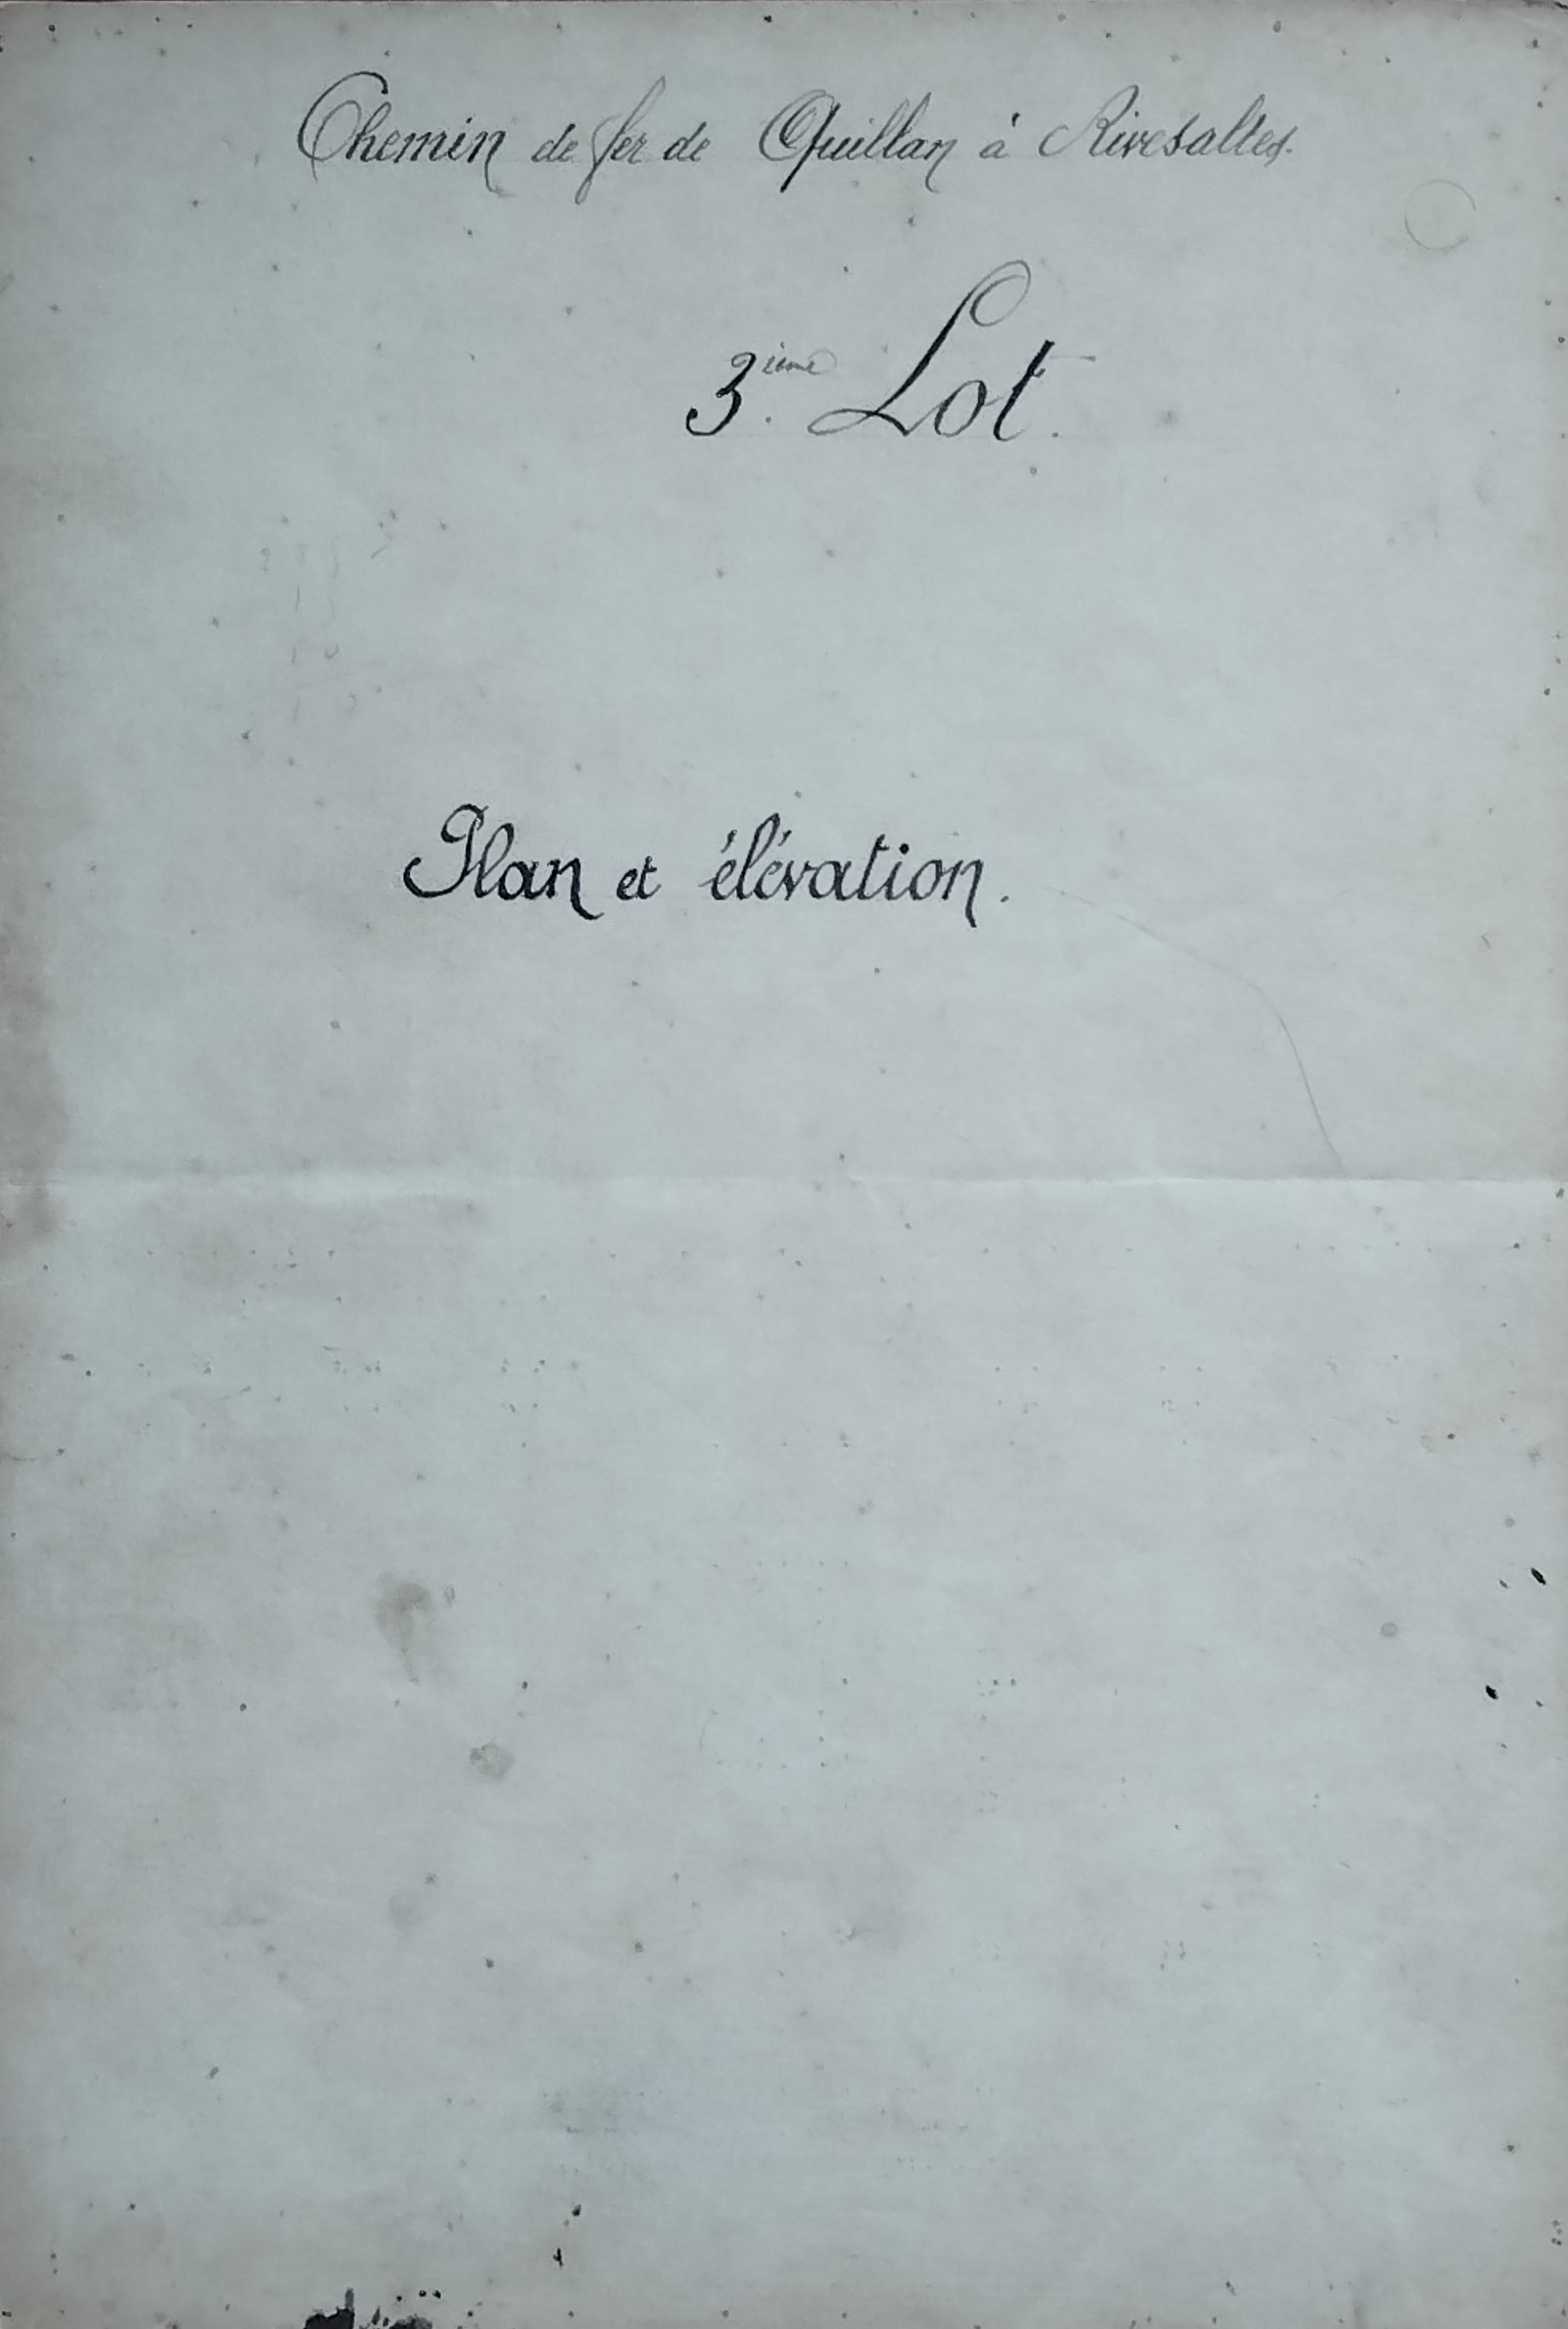 Chemin de fer de Quillan à Rivesaltes.
3.ième Lot.
Plan et élévation.